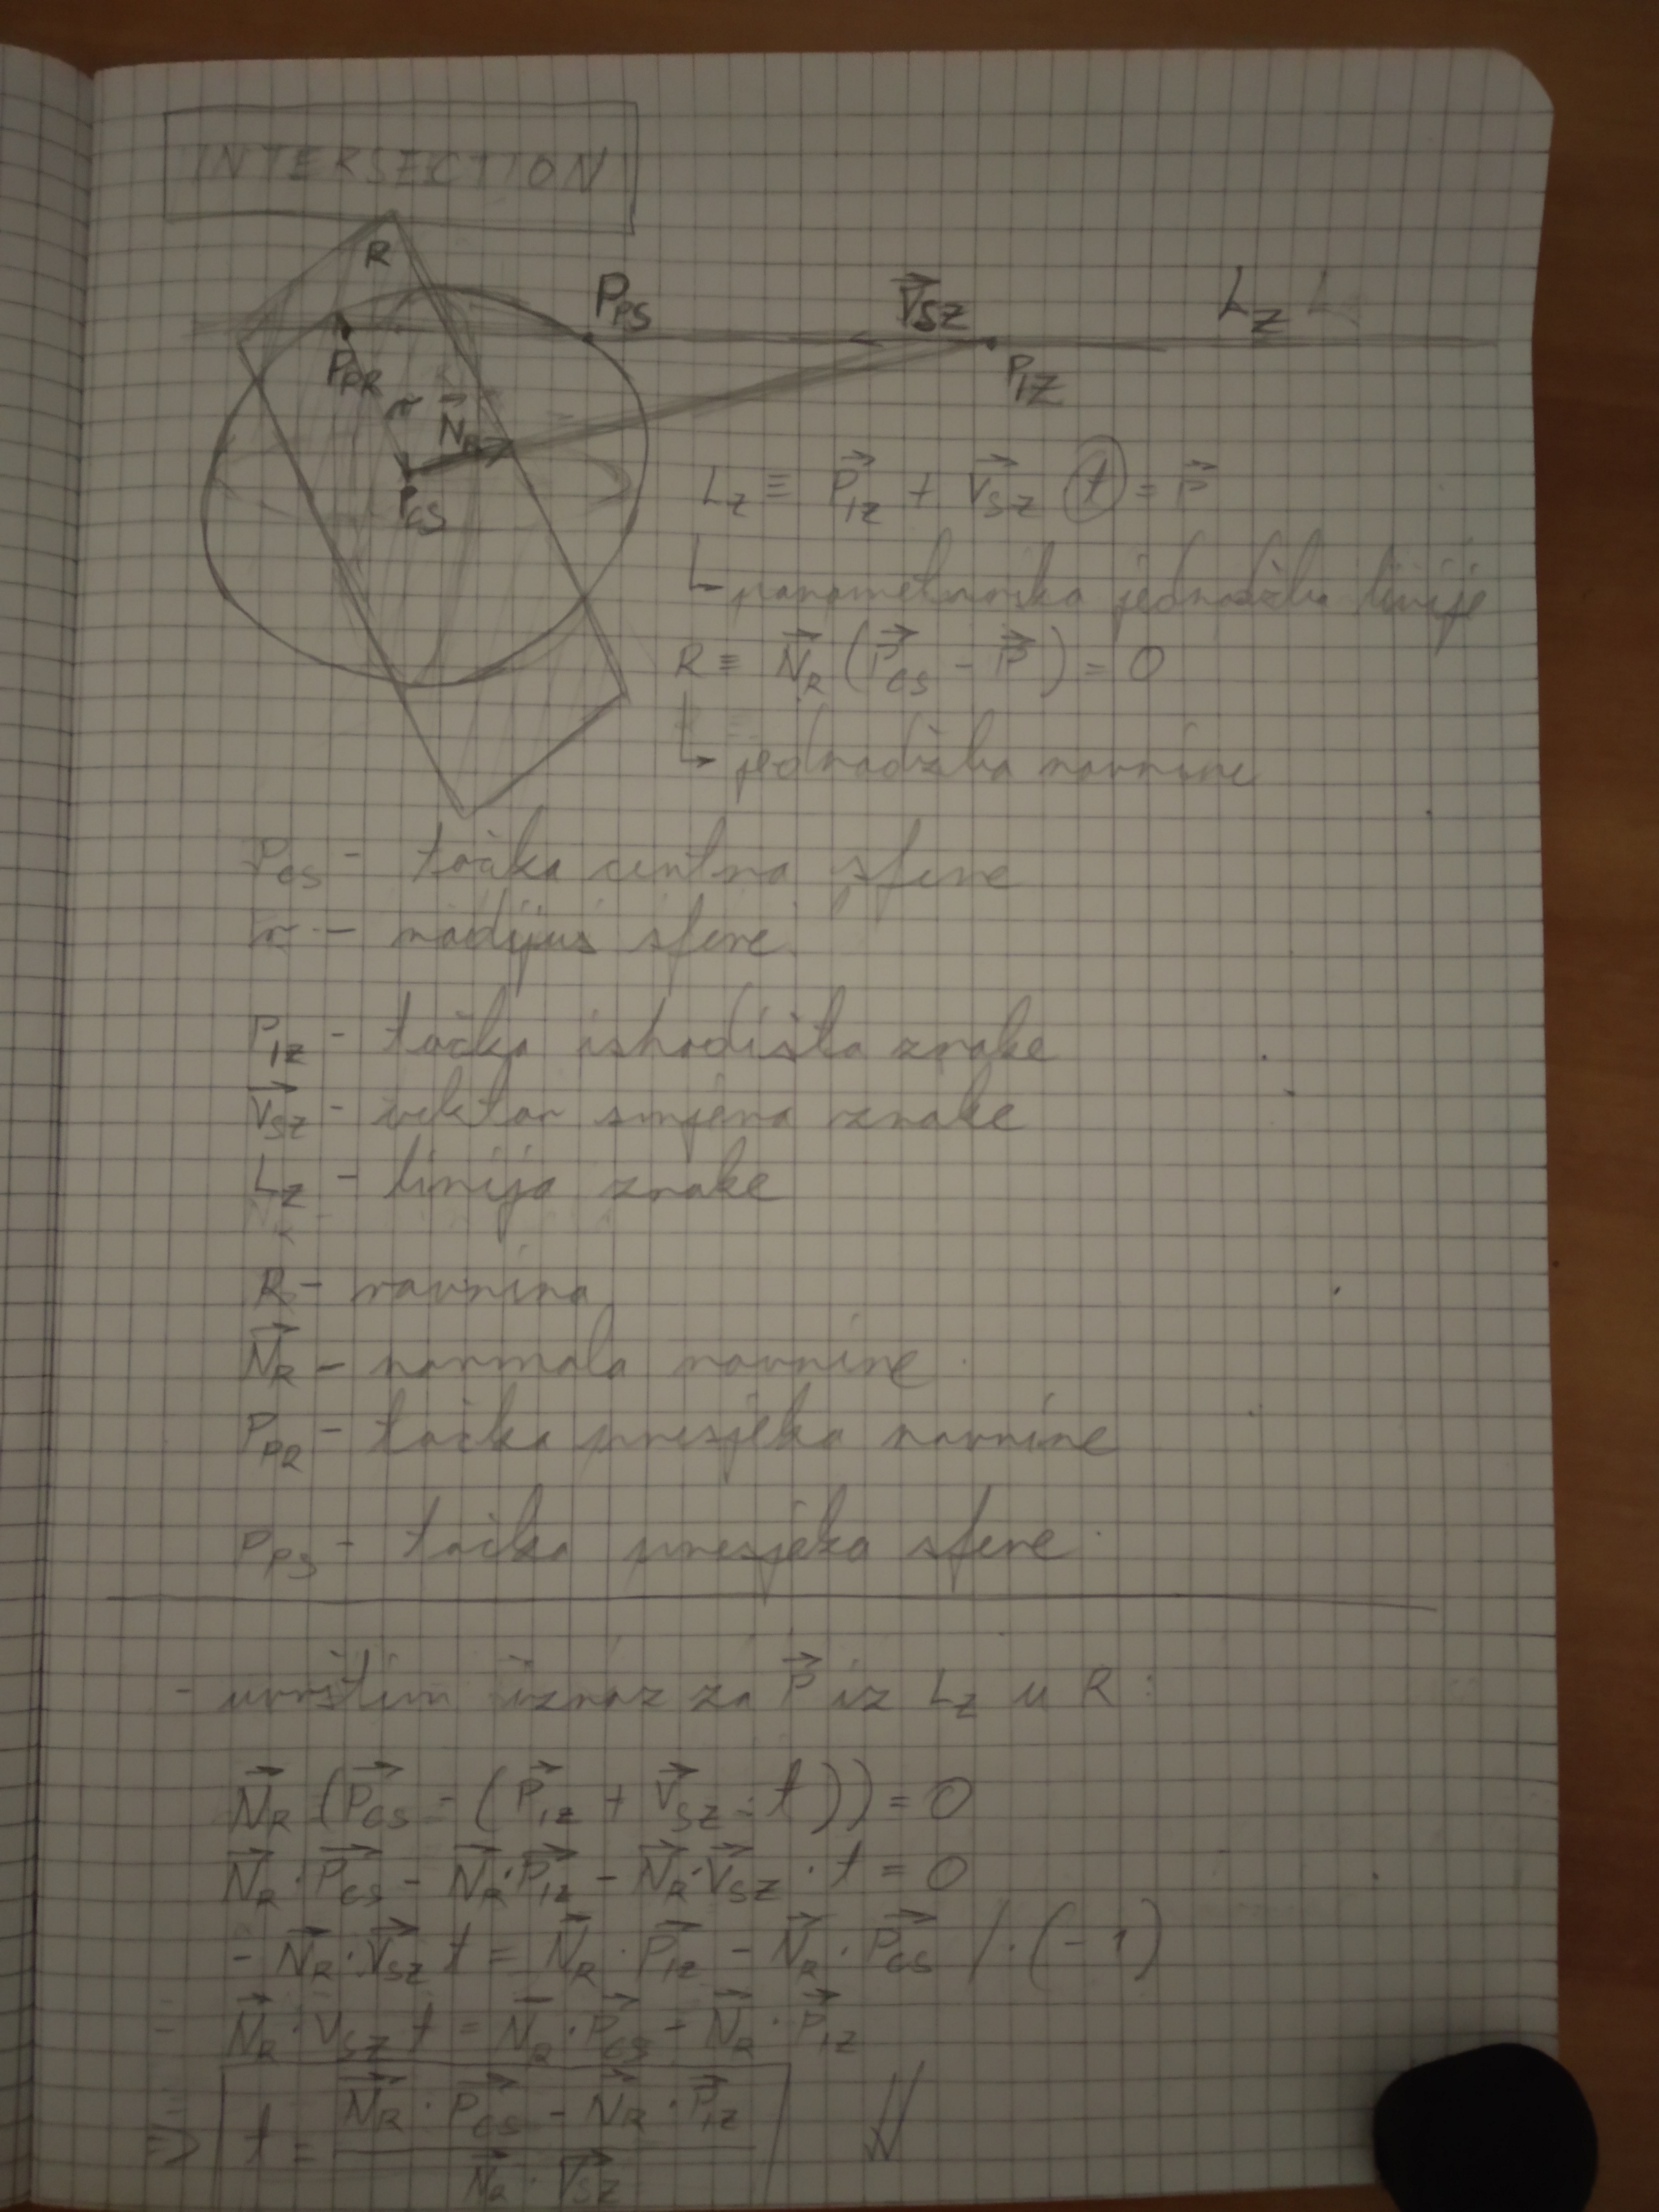 INTERSECTION
R
P_PS
V⃗_SZ
L_Z
P_IZ
P_PR
r
N⃗_R
P_CS
L_Z ≡ P⃗_IZ + V⃗_SZ t = P⃗
↳ parametarska jednadžba linije
R ≡ N⃗_R (P⃗_CS - P⃗) = 0
↳ jednadžba ravnine
P_CS - točka centra sfere
r - radijus sfere
P_IZ - točka ishodišta zrake
V⃗_SZ - vektor smjera zrake
L_Z - linija zrake
R - ravnina
N⃗_R - normala ravnine
P_PR - točka presjeka ravnine
P_PS - točka presjeka sfere
- uvrštim izraz za P⃗ iz L_Z u R :
N⃗_R (P⃗_CS - (P⃗_IZ + V⃗_SZ · t)) = 0
N⃗_R · P⃗_CS - N⃗_R · P⃗_IZ - N⃗_R · V⃗_SZ · t = 0
- N⃗_R · V⃗_SZ t = N⃗_R · P⃗_IZ - N⃗_R · P⃗_CS / · (-1)
N⃗_R · V⃗_SZ t = N⃗_R · P⃗_CS - N⃗_R · P⃗_IZ
⇒ t = (N⃗_R · P⃗_CS - N⃗_R · P⃗_IZ) / (N⃗_R · V⃗_SZ)